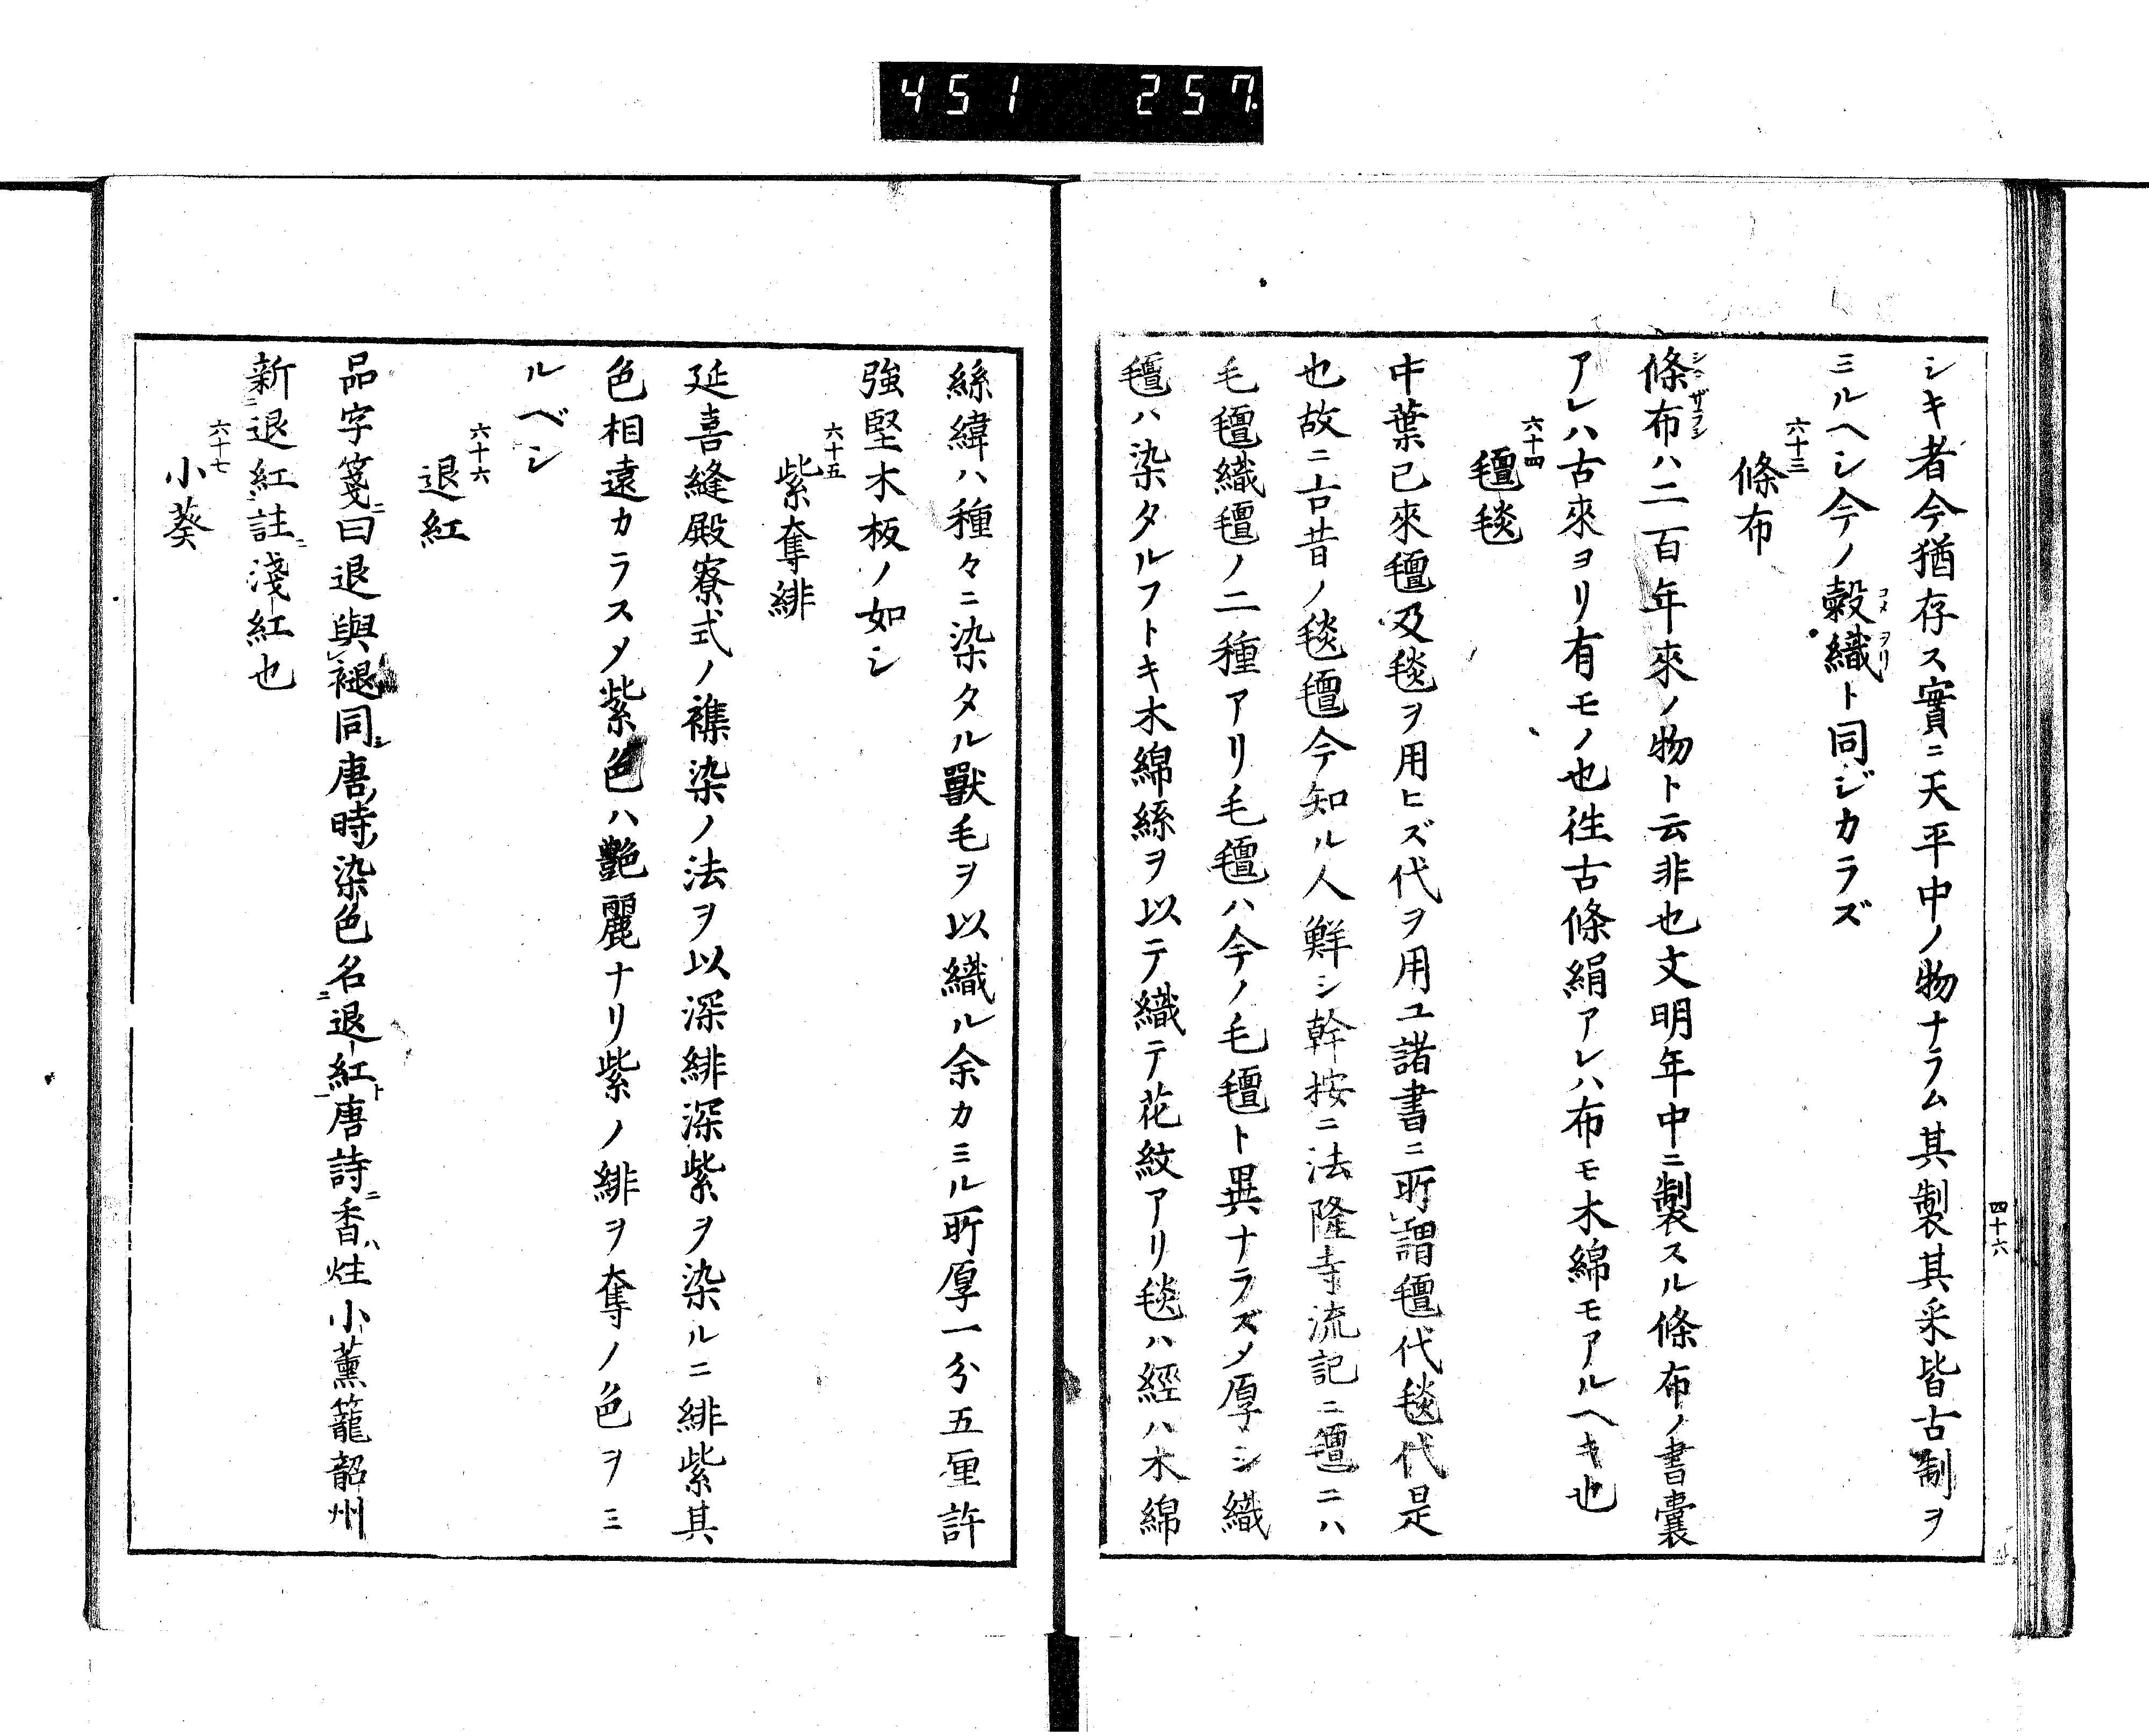 451 257
四十六
シキ者今猶存ス實ニ天平中ノ物ナラム其製其采皆古制ヲ
ミルヘシ今ノ縠織ト同ジカラズ
六十三
條布
條布ハ二百年來ノ物ト云非也文明年中ニ製スル條布ノ書嚢
アレハ古來ヨリ有モノ也徃古條絹アレハ布モ木綿モアルヘキ也
六十四
氊毯
中葉已來氊及毯ヲ用ヒズ代ヲ用ユ諸書ニ所謂氊代毯代是
也故ニ古昔ノ毯氊今知ル人鮮シ幹按ニ法隆寺流記ニ氊ニハ
毛氊織氊ノ二種アリ毛氊ハ今ノ毛氊ト異ナラズメ厚シ織
氊ハ染タルフトキ木綿絲ヲ以テ織テ花紋アリ毯ハ經ハ木綿
絲緯ハ種々ニ染タル獸毛ヲ以織ル余カミル所厚一分五厘許
強堅木板ノ如シ
六十五
紫奪緋
延喜縫殿寮式ノ襍染ノ法ヲ以深緋深紫ヲ染ルニ緋紫其
色相遠カラスメ紫色ハ艶麗ナリ紫ノ緋ヲ奪ノ色ヲミ
ルベシ
六十六
退紅
品字箋ニ曰退與褪同唐時染色名退紅唐詩ニ香炷小薰籠韶州
新退紅註ニ淺紅也
六十七
小葵